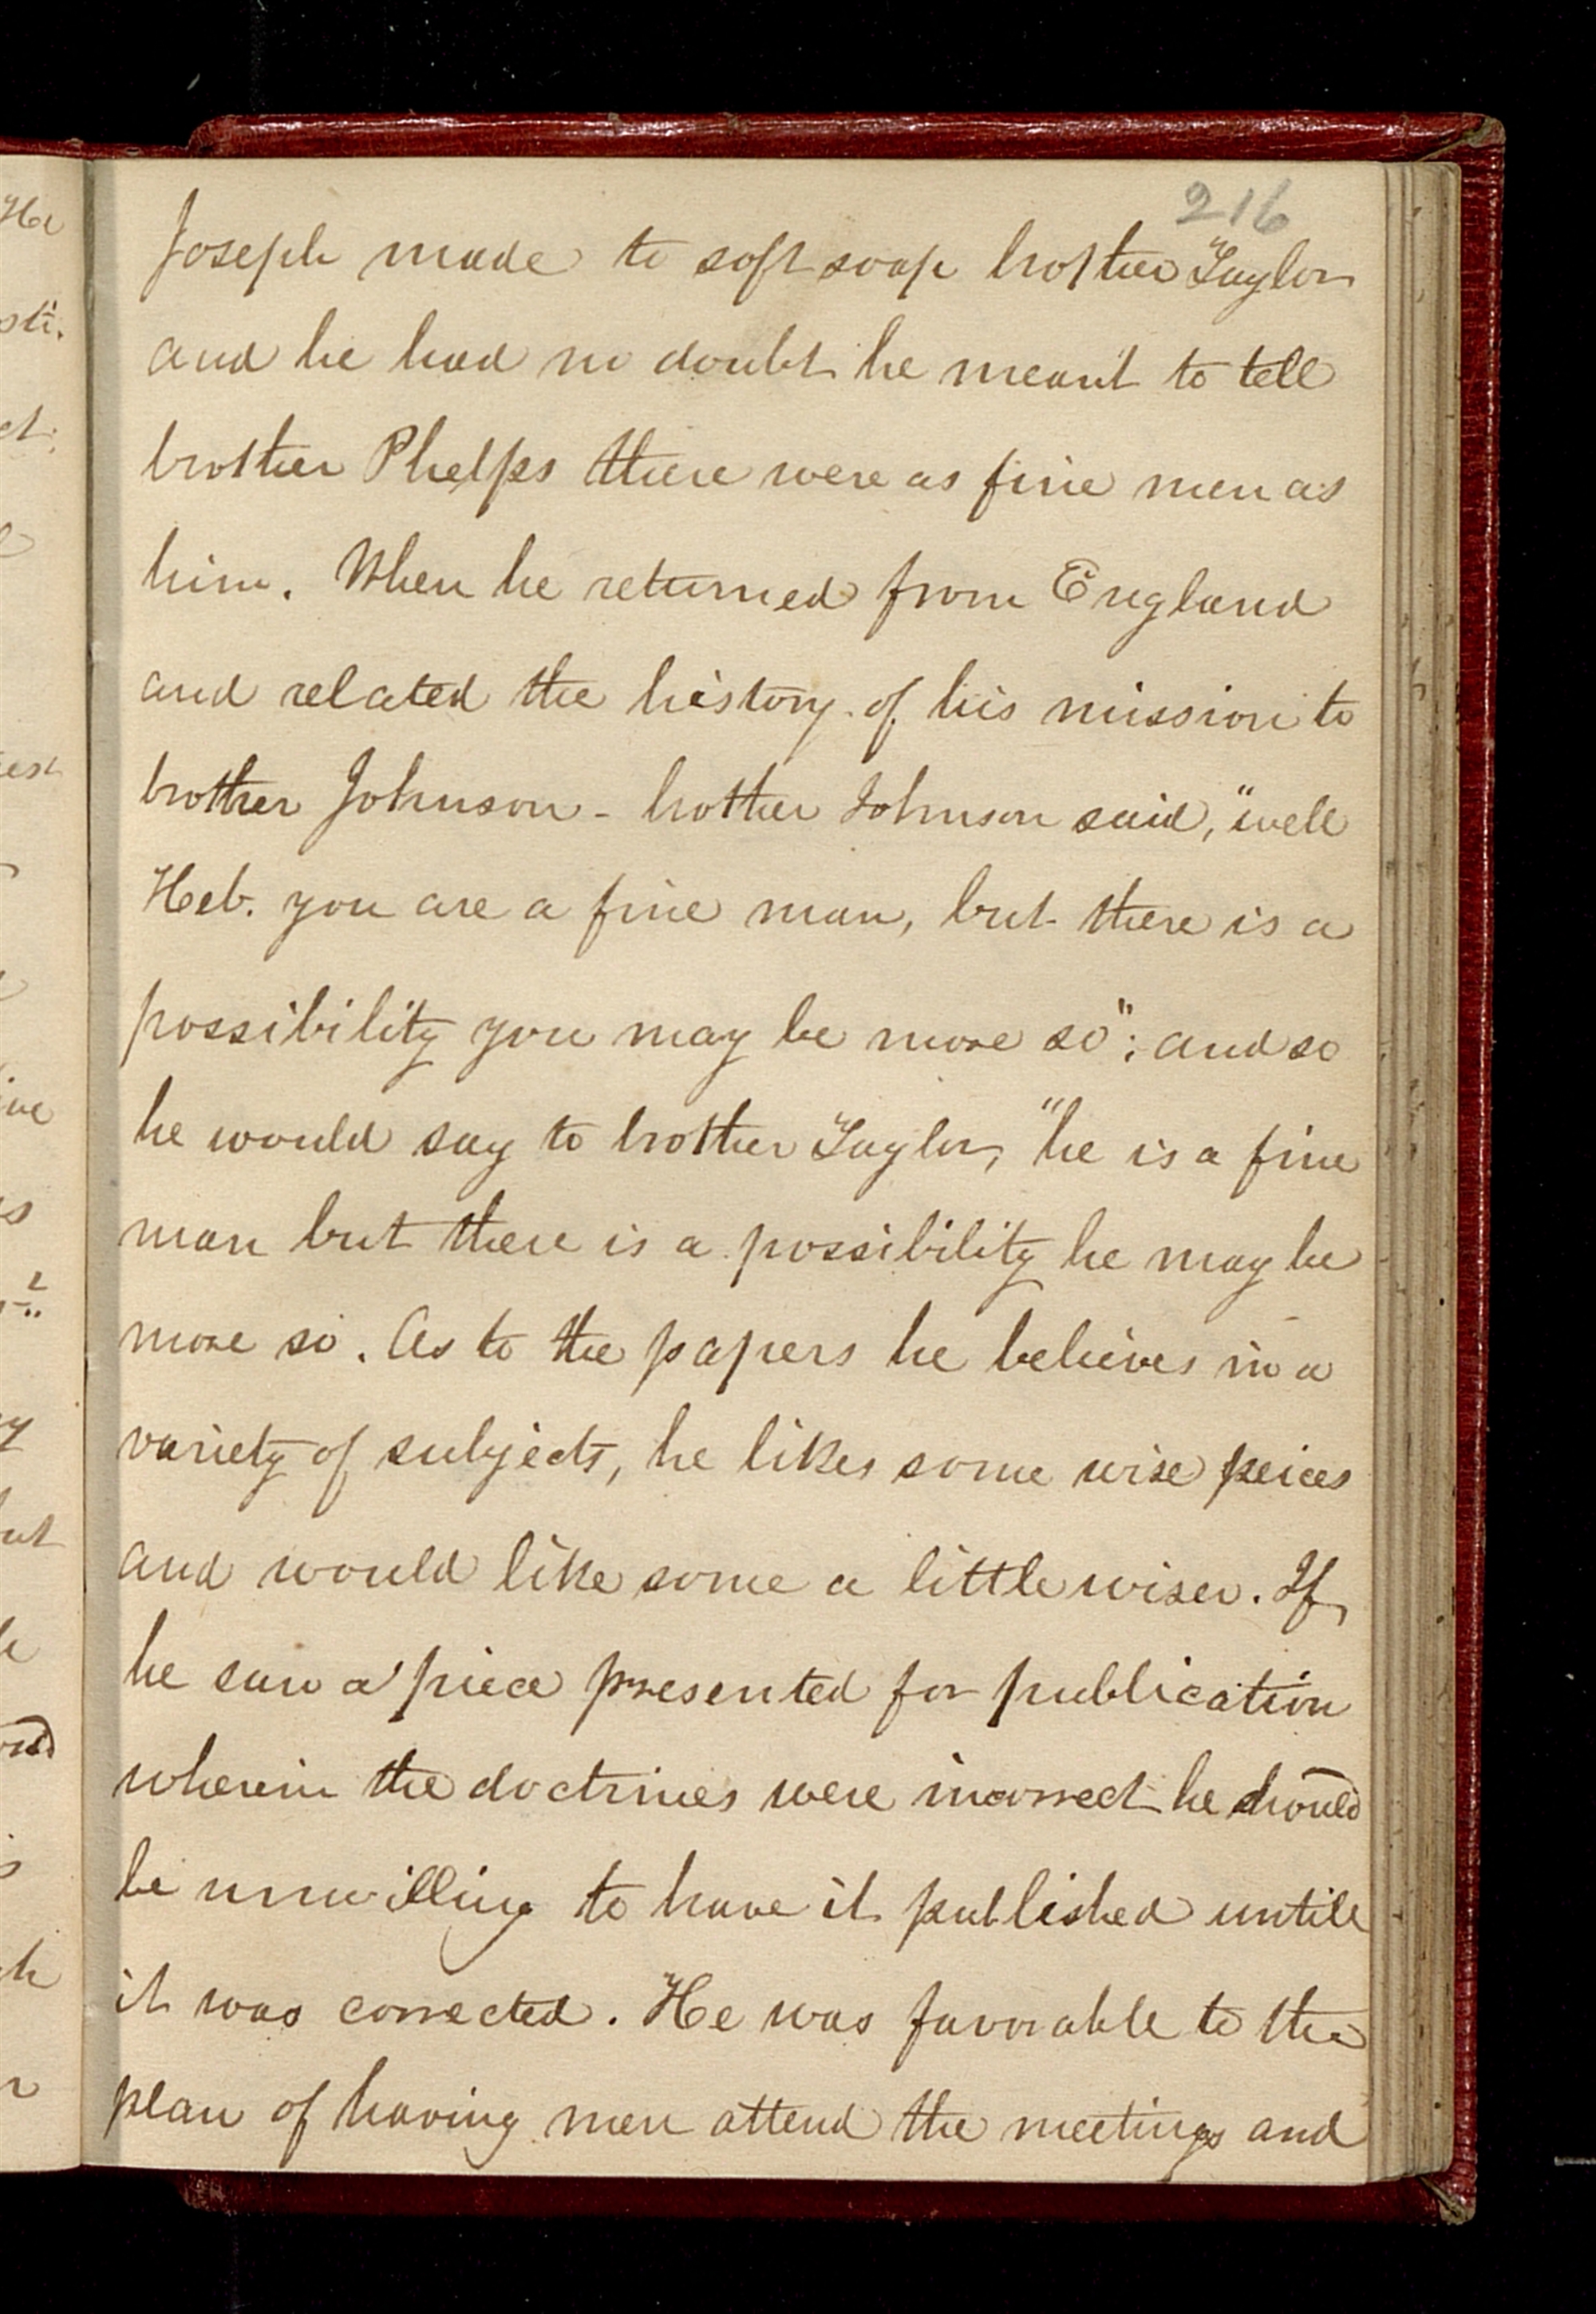 216
Joseph made to soft soap brother Taylor
and he had no doubt he meant to tell
brother Phelps there were as fine men as
him. When he returned from England
and related the history of his mission to
brother Johnson - brother Johnson said, "well
Heb. you are a fine man, but there is a
possibility you may be more so"; and so
he would say to brother Taylor, "he is a fine
man but there is a possibility he may be
more so. As to the papers he believes in a
variety of subjects, he likes some wise peices
and would like some a little wiser. If
he saw a piece presented for publication
wherein the doctrines were incorrect he should
be unwilling to have it published untill
it was corrected. He was favorable to the
plan of having men attend the meetings and